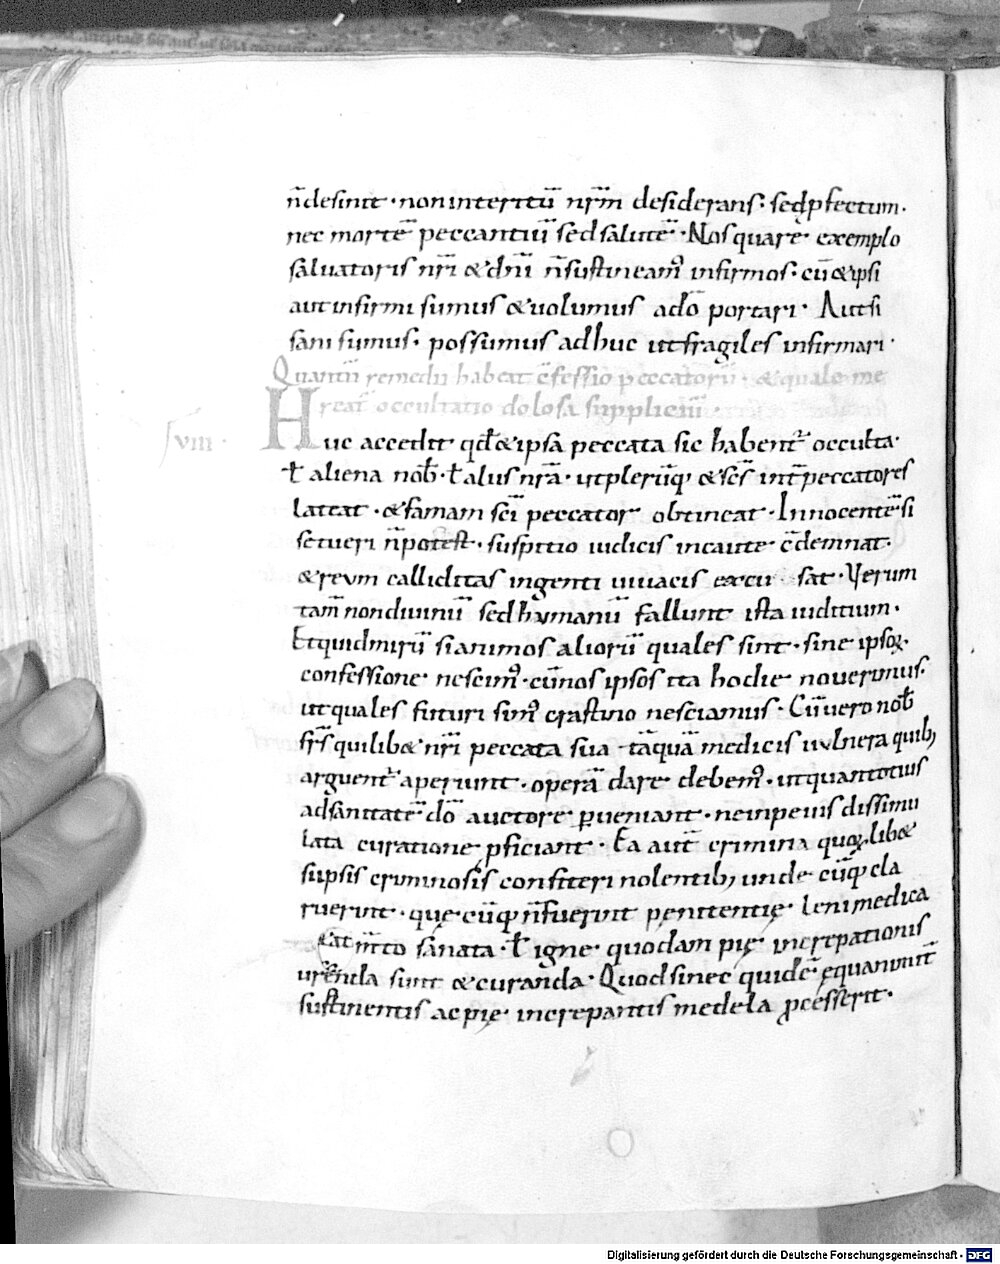 n̄desinit · non interitū nr̄m desiderans · sedp̱fectum ·
nec mortē peccantiū sed salutē · Nos quare exemplo
saluatoris nr̄i & dn̄i n̄sustineam᷒ infirmos · cū & ipsi
aut infirmi sumus & uolumus ado͞ portari · Aut si
sani sumus · possumus adhuc ut fragiles infirmari ·
Quantū remedii habeat c̄fessio peccatorū · & quale me
reat̄ occultatio dolosa suppliciū ·
VIII ·
Huc accedit qd̄ & ipsa peccata sic habent̄ occulta ·
ł aliena nob̄ · ł aliis nr̄a · ut plerūq; & sc̄s int̄ peccatores
lateat · & famam sc̄i peccator obtineat · Innocentē si
se tueri n̄potest · suspitio iudicis incaute c̄demnat ·
& reum calliditas ingenii uiuacis excu sat · Verum
tam̄ non diuinū sed humanū fallunt ista iuditium ·
Et quid mirū si animos aliorū quales sint · sine ipsoꝝ
confessione nescim᷒ · cū nos ipsos ita hodie nouerimus
ut quales futuri sim᷒ crastino nesciamus · Cū uero nob̄
fr̄s quilib& nr̄i peccata sua tāquā medicis uulnera quib;
arguent̄ aperiunt · operā dare debem᷒ · ut quantotius
ad sanitatē do͞ auctore ꝑueniant · ne in peius dissimu
lata curatione p̱ficiant · Ea aut̄ crimina quoꝝlib&
si ipsis criminosis confiteri nolentib; unde cūq; cla
ruerint · quę cūq; n̄ fuerint penitentię leni medica
sanata · ł igne quodam pię increpationis
urenda sunt & curanda · Quod si nec quidē ęquanimit̄
sustinentis ac pię increpantis medela p̱cesserit ·
Digitalisierung gefördert durch die Deutsche Forschungsgemeinschaft - DFG